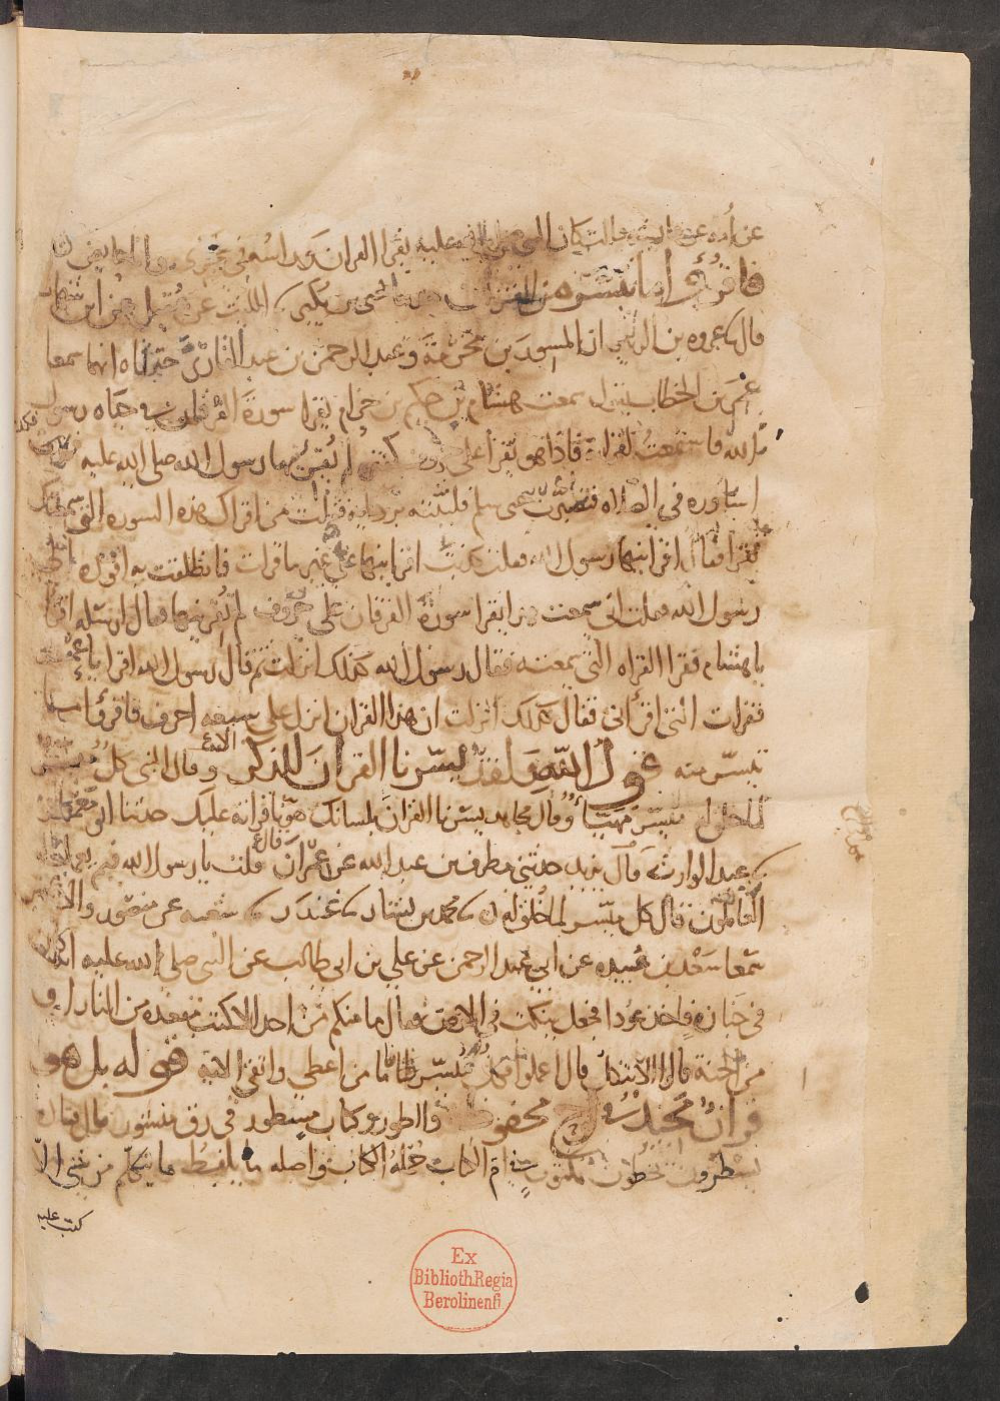 عن أمه عن عائشة قالت كان النبي صلى الله عليه يقرا القران وراسه في حجري وانا حايض
فاقرؤا ما تيسر من القران حدثنا يحيى بن بكير الليث عن عقيل عن ابن شهاب
قال عروه بن الزبير ان المسور بن مخرمة وعبد الرحمن بن عبد القاري حدثاه انهما سمعا
عمر بن الخطاب يقول سمعت هشام بن حكيم بن حزام يقرا سورة الفرقان في حياه رسول
الله فاستمعت لقراته فاذا هو يقرا على حروف كثيره لم يقرئنيها رسول الله صلى الله عليه فكدت
اساوره في الصلاه فتصبرت حتى سلم فلببته بردايه فقلت من اقراك هذه السوره التي سمعتك
تقرا فقال اقرانيها رسول الله فقلت كذبت اقرانيها على غير ما قرات فانطلقت به اقوده الى
رسول الله فقلت اني سمعت هذا يقرا سورة الفرقان على حروف لم تقرئنيها فقال ارسله اقرا
يا هشام فقرا القراه التي سمعته فقال رسول الله كذلك انزلت ثم قال رسول الله اقرا يا عمر
فقرات التي اقرأني فقال كذلك انزلت ان هذا القران انزل على سبعه احرف فاقرؤا ما
تيسر منه قول الله ولقد يسرنا القران للذكر الاية وقال النبي كل ميسر
لما خلق له ميسر مهيأ وقال مجاهد يسرنا القران بلسانك هونا قراته عليك حدثنا ابو معمر
عبد الوارث قال يزيد حدثني مطرف بن عبد الله عن عمران قال قلت يا رسول الله فيم يعمل
العاملون قال كل ميسر لما خلق له محمد بن بشار غندر شعبه عن منصور والاعمش
سمعا سعد بن عبيده عن ابي عبد الرحمن عن علي بن ابي طالب عن النبي صلى الله عليه انه كان
في جنازه فاخذ عودا فجعل ينكت في الارض فقال ما منكم من احد الا كتب مقعده من النار او
من الجنة قالوا الا نتكل قال اعملوا فكل ميسر فاما من اعطى واتقى الاية قوله بل هو
قرآن مجيد في لوح محفوظ والطور وكتاب مسطور في رق منشور قال قتاده
يسطرون يخطون مكتوب في ام الكتاب جملة الكتاب واصله ما يلفظ ما يتكلم من شي الا
كتب عليه
Ex
Biblioth.Regia
Berolinensi